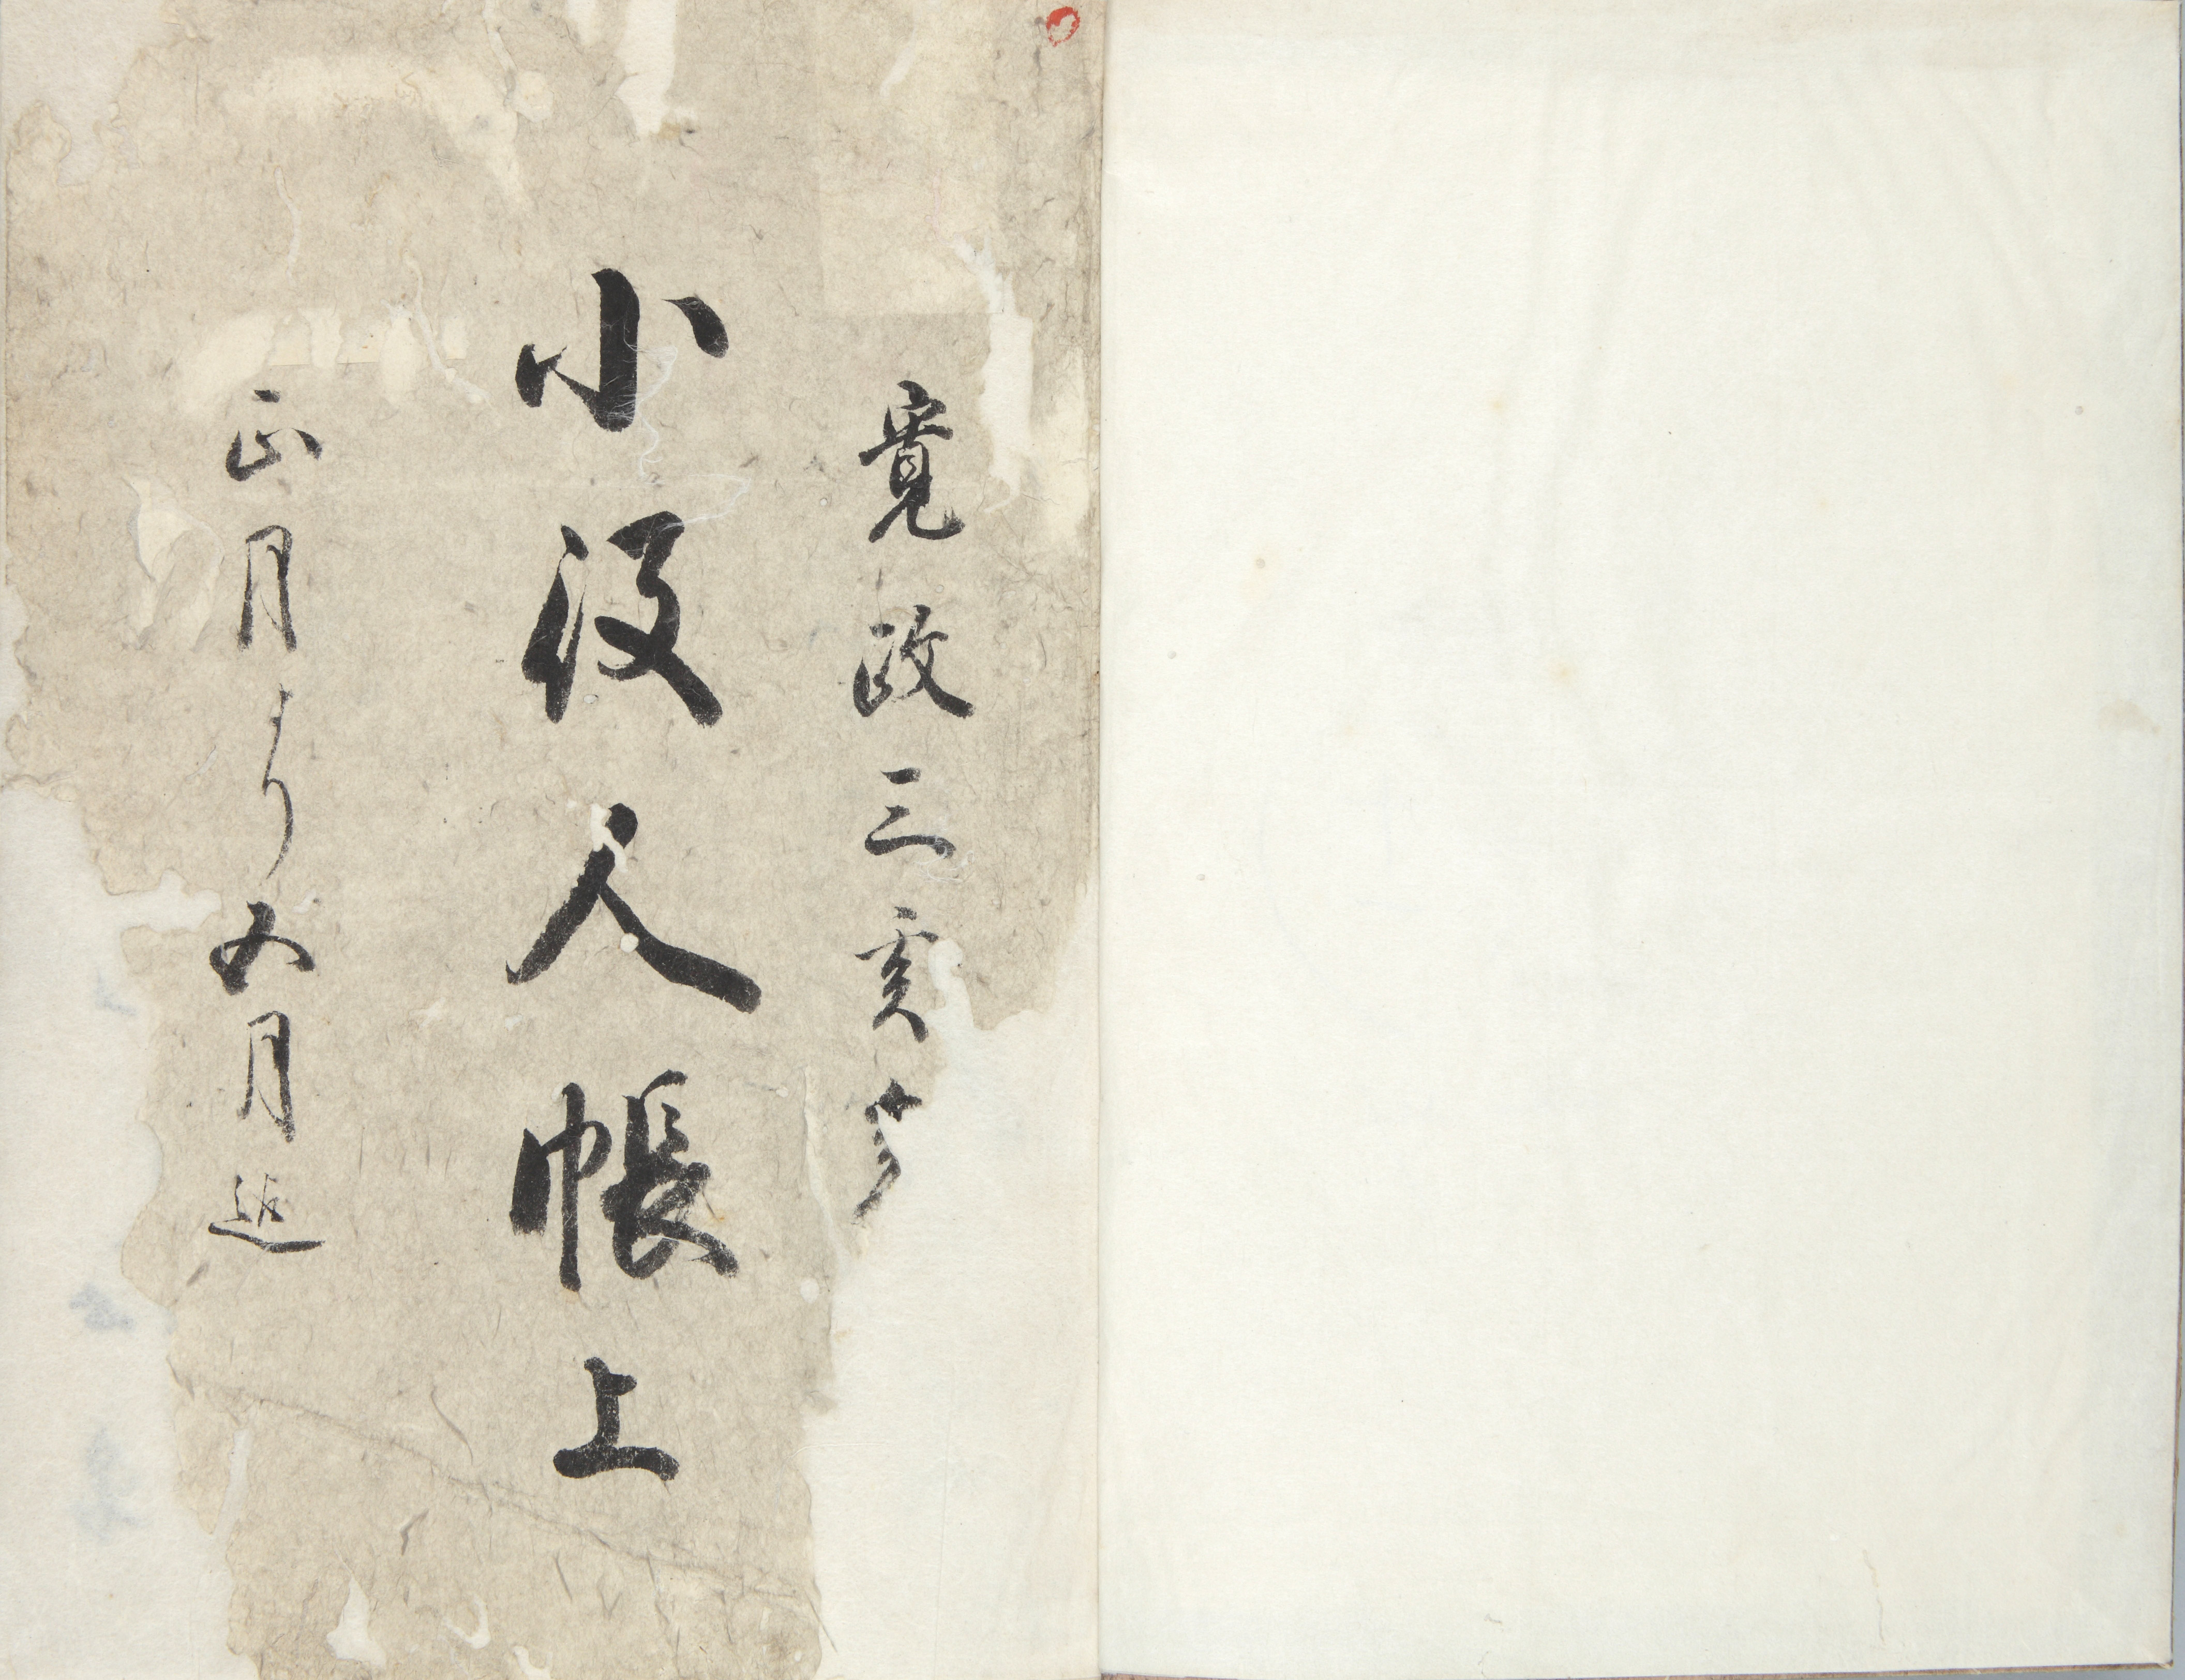 寛政三亥歳
小役人帳上
正月より五月迄